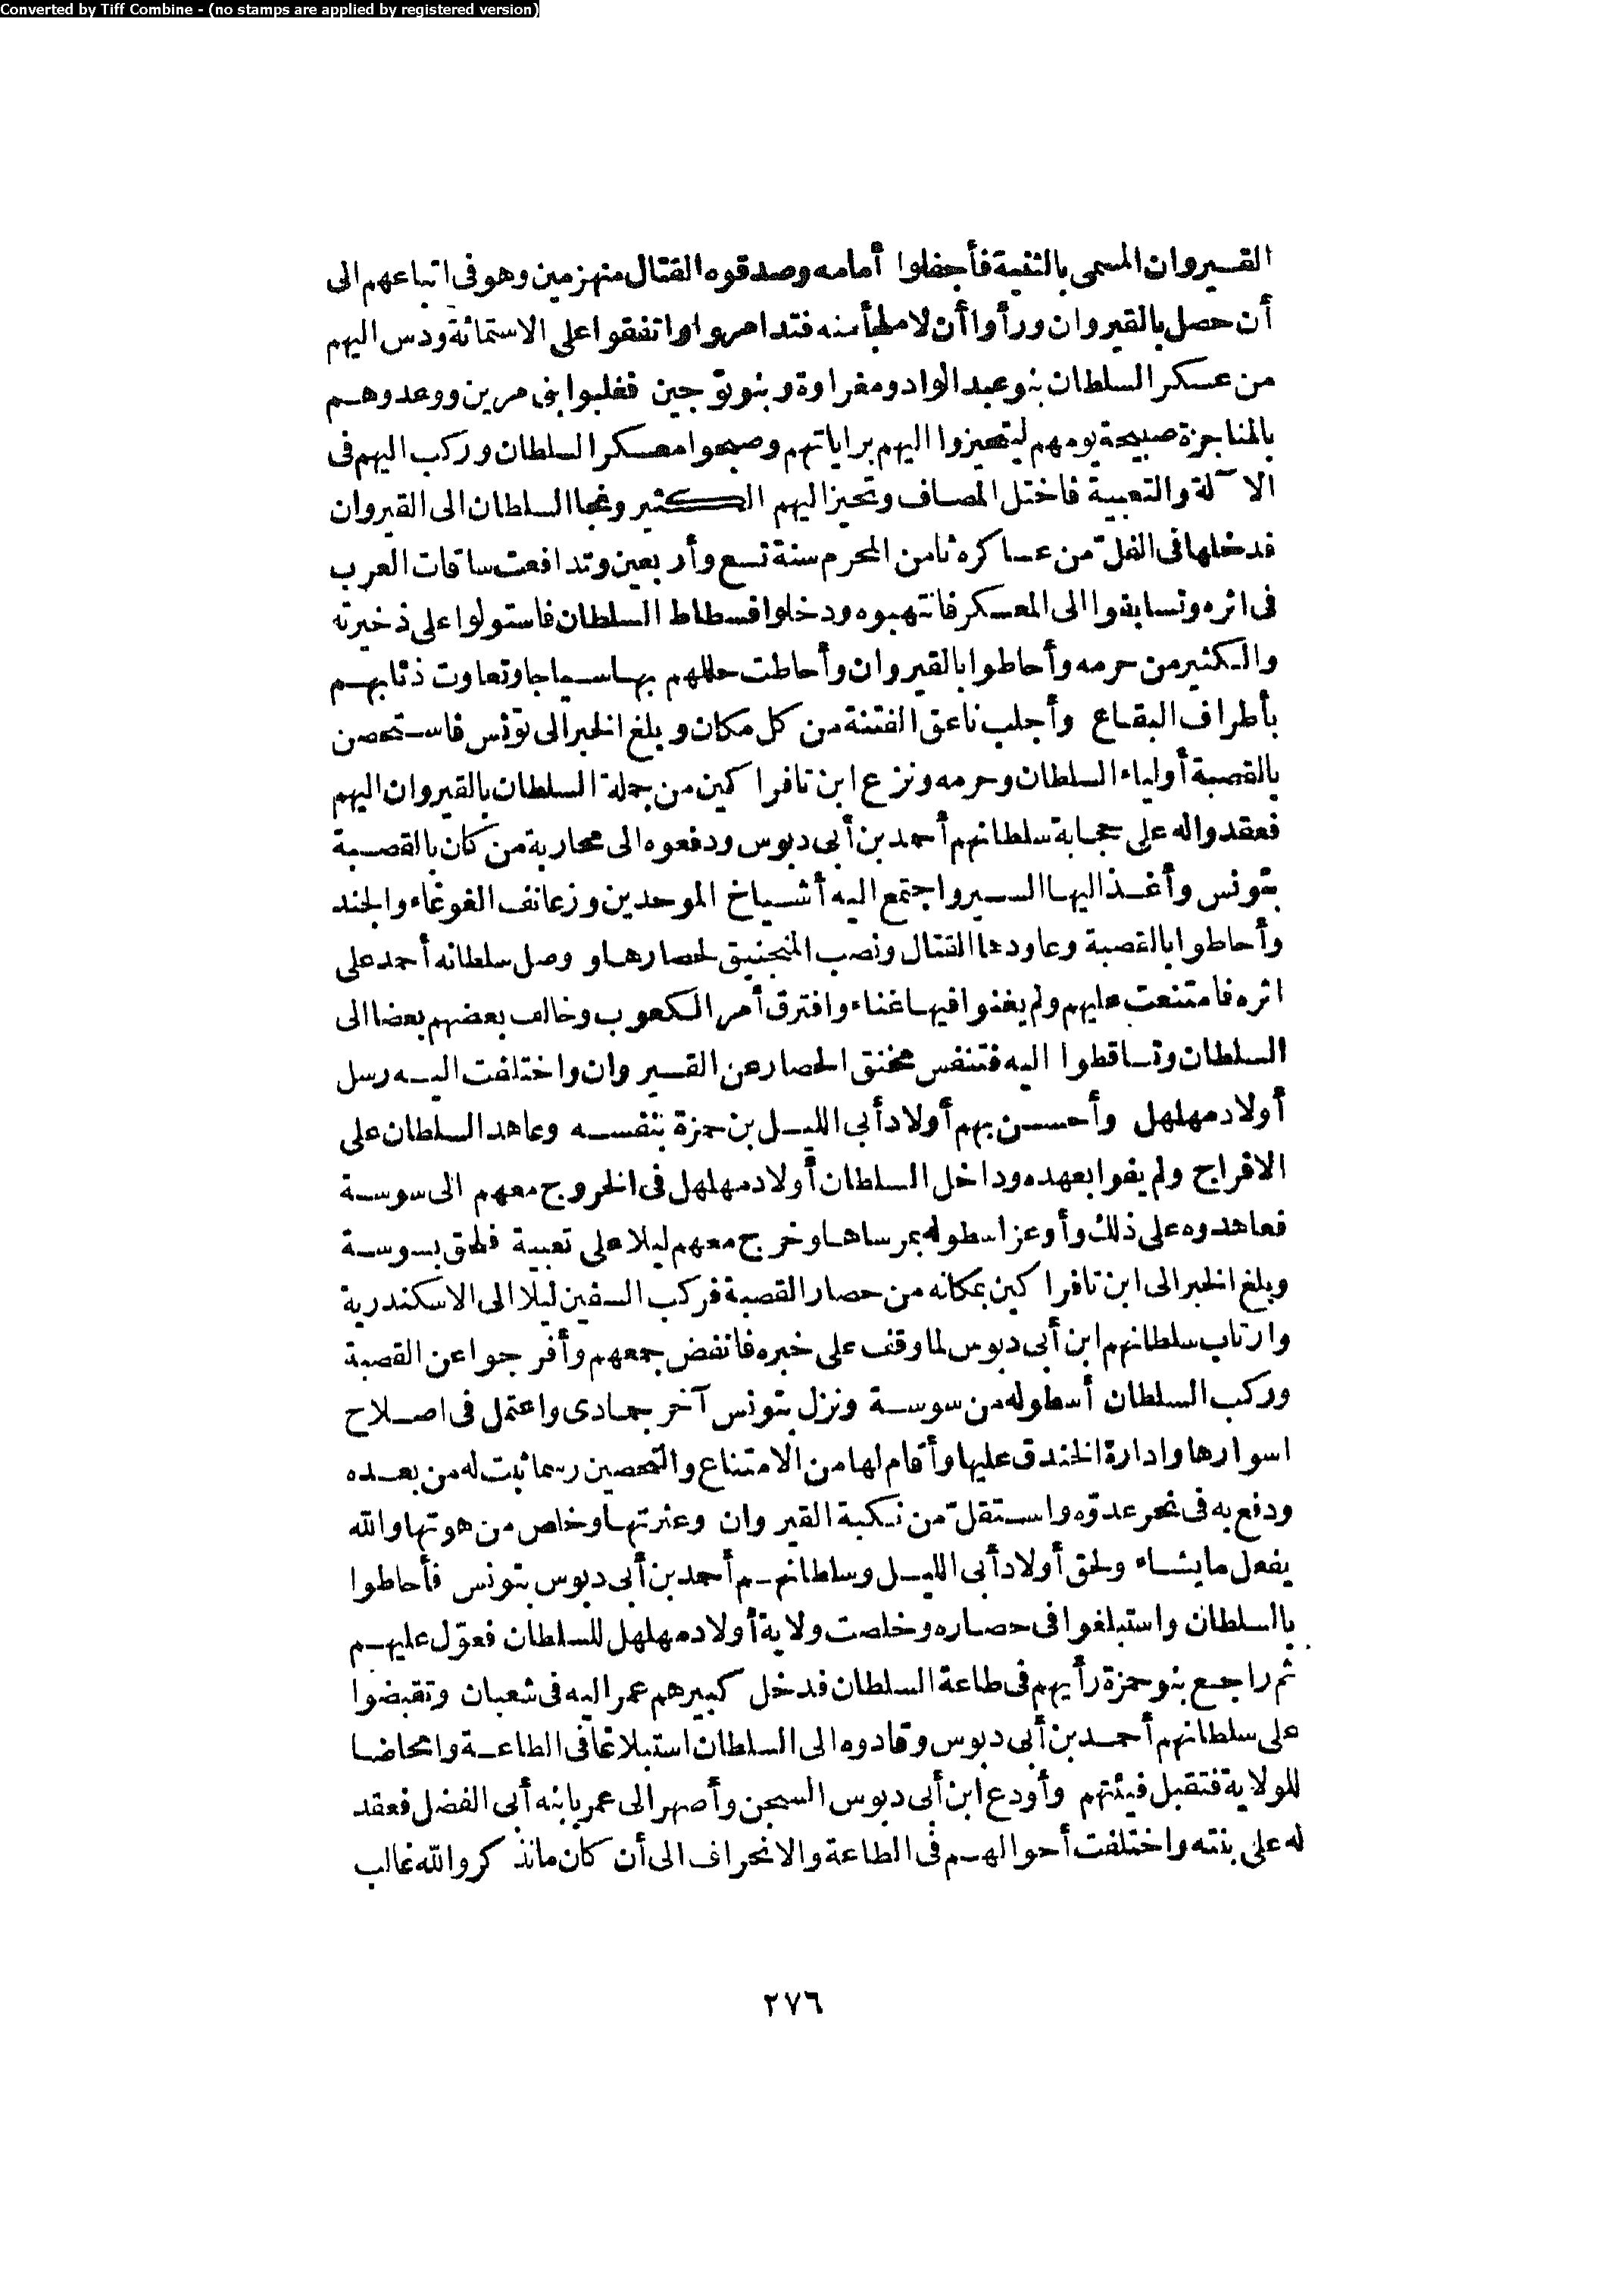 Converted by Tiff Combine - (no stamps are applied by registered version)
القيروان المسمى بالثنية فأجفلوا أمامه وصدقوه القتال منهزمين وهو فى اتباعهم الى
أن حصل بالقيروان ورأوا أن لا ملجأ منه فتدامروا واتفقوا على الاستماتة ودس اليهم
من عسكر السلطان بنو عبد الواد ومغراوة وبنو توجين فغلبوا بنى مرين ووعدوهم
بالمناجزة صبيحة يومهم ليتحيزوا اليهم براياتهم وصبحوا معسكر السلطان وركب اليهم فى
الآلة والتعبية فاختل المصاف وتحيز اليهم الكثير ونجا السلطان الى القيروان
فدخلها فى الفلّ من عساكره ثامن المحرم سنة تسع وأربعين وتدافعت ساقات العرب
فى اثره وتسابقوا الى المعسكر فانتهبوه ودخلوا فسطاط السلطان فاستولوا على ذخيرته
والكثير من حرمه وأحاطوا بالقيروان وأحاطت حللهم بها سياجا وتعاوت ذئابهم
بأطراف البقاع وأجلب ناعق الفتنة من كل مكان وبلغ الخبر الى تونس فاستحصن
بالقصبة أولياء السلطان وحرمه ونزع ابن تافراكين من جملة السلطان بالقيروان اليهم
فعقدوا له على حجابة سلطانهم أحمد بن أبى دبوس ودفعوه الى محاربة من كان بالقصبة
بتونس وأغذ اليها السير واجتمع اليه أشياخ الموحدين وزعانف الغوغاء والجند
وأحاطوا بالقصبة وعاودها القتال ونصب المنجنيق لحصارها ووصل سلطانه أحمد على
اثره فامتنعت عليهم ولم يغنوا فيها غناء وافترق أمر الكعوب وخالف بعضهم بعضا الى
السلطان وتساقطوا اليه فتنفس مخنق الحصار عن القيروان واختلفت اليه رسل
أولاد مهلهل وأحسن بهم أولاد أبى الليل بن حمزة بنفسه وعاهد السلطان على
الافراج ولم يفوا بعهده وداخل السلطان أولاد مهلهل فى الخروج معهم الى سوسة
فعاهدوه على ذلك وأوعز اسطوله بمرساها وخرج معهم ليلا على تعبية فلحق بسوسة
وبلغ الخبر الى ابن تافراكين بمكانه من حصار القصبة فركب السفين ليلا الى الاسكندرية
وارتاب سلطانهم ابن أبى دبوس لما وقف على خبره فانفض جمعهم وأفرجوا عن القصبة
وركب السلطان أسطوله من سوسة ونزل بتونس آخر جمادى واعتمل فى اصلاح
اسوارها وادارة الخندق عليها وأقام لها من الامتناع والتحصين رسما ثبت له من بعده
ودفع به فى نحر عدوّه واستقلّ من نكبة القيروان وعثرتها وخلص من هوتها والله
يفعل ما يشاء ولحق أولاد أبى الليل وسلطانهم أحمد بن أبى دبوس بتونس فأحاطوا
بالسلطان واستبلغوا فى حصاره وخلصت ولاية أولاد مهلهل للسلطان فعوّل عليهم
ثم راجع بنو حمزة رأيهم فى طاعة السلطان فدخل كبيرهم عمر اليه فى شعبان وتقبضوا
على سلطانهم أحمد بن أبى دبوس وقادوه الى السلطان استبلاغا فى الطاعة وامحاضا
للولاية فتقبل فيئتهم وأودع ابن أبى دبوس السجن وأصهر الى عمر بابنه أبى الفضل فعقد
له على بنته واختلفت أحوالهم فى الطاعة والانحراف الى أن كان ما نذكر والله غالب
٢٧٦